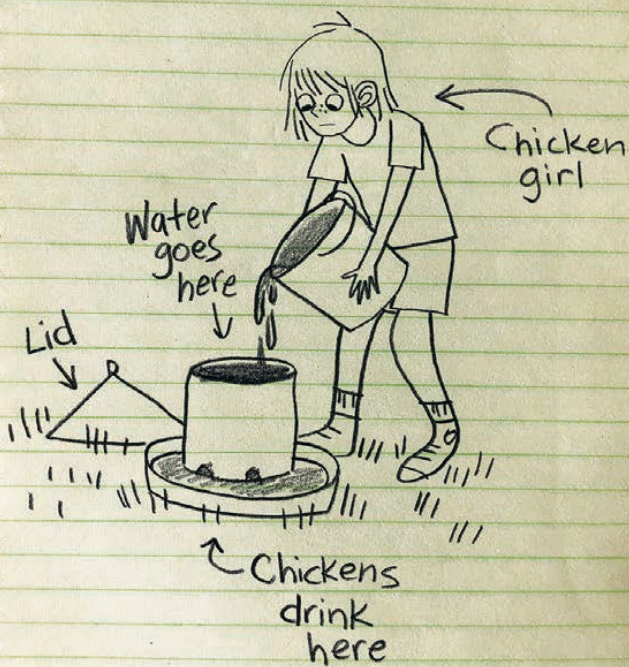 Chicken
girl
Water
goes
here
Lid
Chickens
drink
here